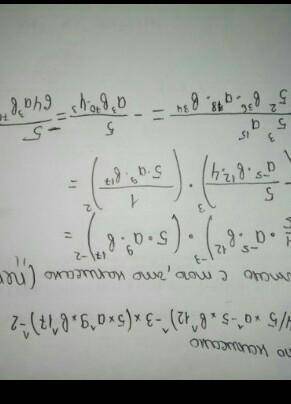 написано
4/5*a^-5*b^12)^-3*(5*a^9*b^17)^-2
с того, что написано
· a⁻⁵ · b¹²)⁻³ · (5·a⁹·b¹⁷)⁻² =
(-5/(a⁻⁵b¹²·4))³ · (1/(5·a⁹·b¹⁷))² =
5³a¹⁵/(5²b³⁶·a¹⁸·b³⁴) = -5/(a³b⁷⁰·4³) = -5/(64a³b⁷